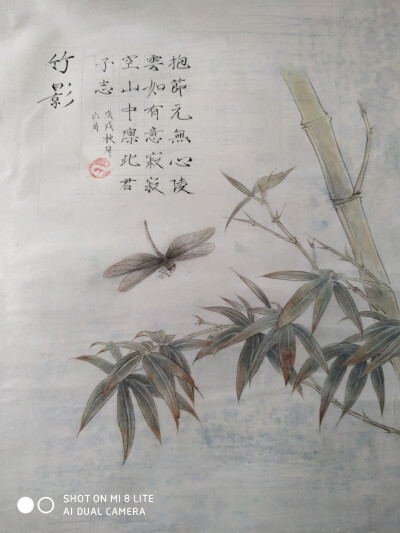 抱節元無心陵
雲如有意寂寂
空山中凜此君
子志
戊戌秋月
竹影
SHOT ON MI 8 LITE
AI DUAL CAMERA